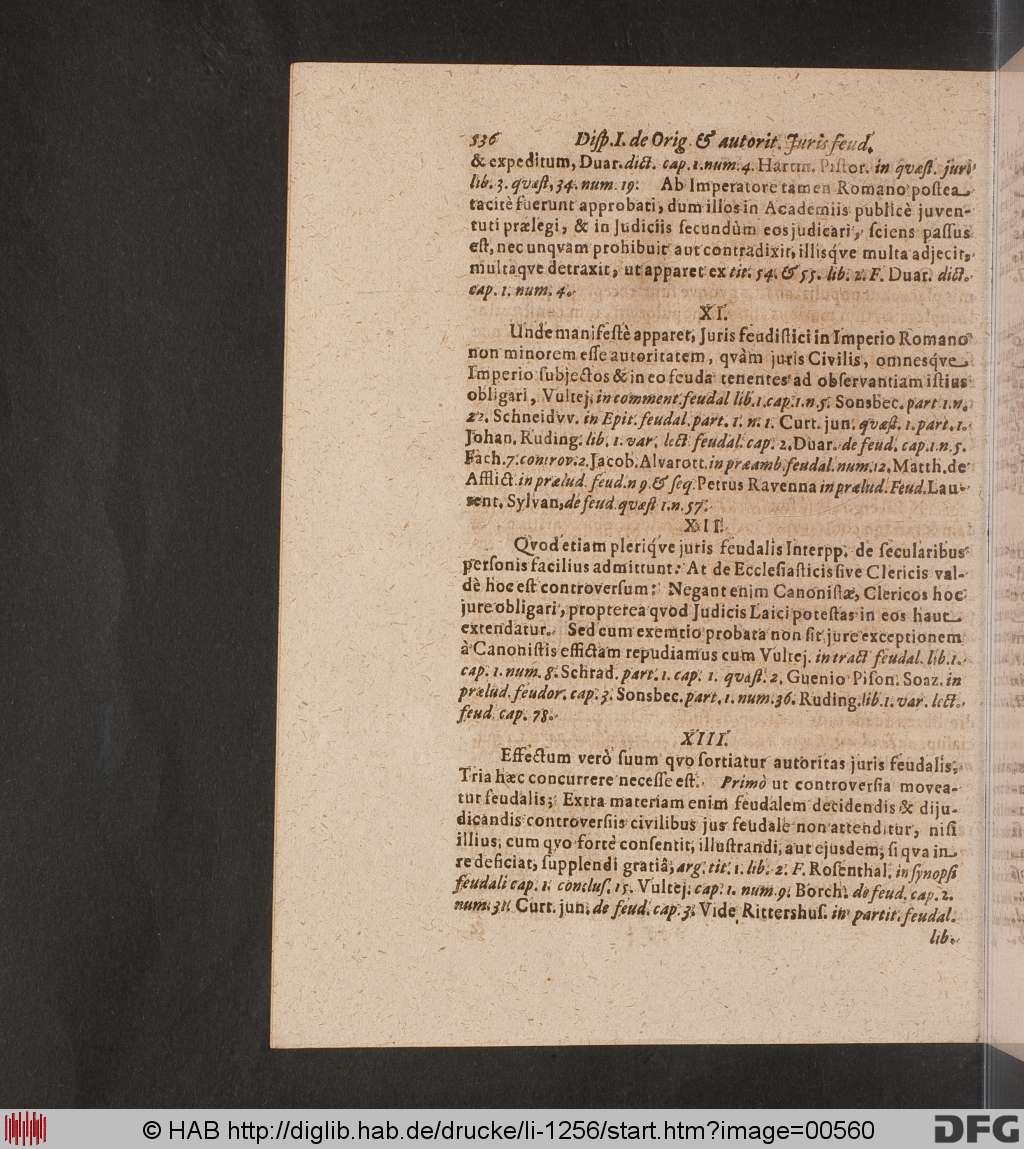 536 Disp. I. de Orig. & autorit. Juris feud.
& expeditum, Duar. dict. cap. 1. num. 4. Hartm. Pistor. in qvæst. juris
lib. 3. qvæst, 34. num. 19. Ab Imperatore tamen Romano postea
tacitè fuerunt approbati, dum illos in Academiis publicè juven-
tuti prælegi, & in Judiciis secundùm eos judicari, sciens passus
est, nec unqvam prohibuit aut contradixit, illisqve multa adjecit,
multaqve detraxit, ut apparet ex tit. 54. & 55. lib. 2. F. Duar. dict.
cap. 1. num. 4.
XI.
Unde manifestè apparet, Juris feudistici in Imperio Romano
non minorem esse autoritatem, qvàm juris Civilis, omnesqve
Imperio subjectos & in eo feuda tenentes ad observantiam istius
obligari, Vultej. in comment. feudal lib. 1. cap. 1. n. 5. Sonsbec. part 1. n.
22. Schneidvv. in Epit. feudal. part. 1. n. 1. Curt. jun. qvæst. 1. part. 1.
Johan. Ruding. lib. 1. var. lect feudal. cap. 2. Duar. de feud. cap. 1. n. 5.
Fach. 7. controv. 2. Jacob. Alvarott. in præamb. feudal. num. 12. Matth. de
Afflict. in prælud. feud. n 9. & seq. Petrus Ravenna in prælud. Feud. Lau-
rent. Sylvan, de feud. qvæst 1. n. 57.
XII.
Qvod etiam pleriqve juris feudalis Interpp. de secularibus
personis facilius admittunt: At de Ecclesiasticis sive Clericis val-
dè hoc est controversum: Negant enim Canonistæ, Clericos hoc
jure obligari, propterea qvod Judicis Laici potestas in eos haut
extendatur. Sed cum exemtio probata non sit jure exceptionem
à Canonistis effictam repudiamus cum Vultej. in tract feudal. lib. 1.
cap. 1. num. 8. Schrad. part. 1. cap. 1. qvæst. 2, Guenio Pison. Soaz. in
prælud. feudor. cap. 3. Sonsbec. part. 1. num. 36. Ruding. lib. 1. var. lect.
feud. cap. 78.
XIII.
Effectum verò suum qvo sortiatur autoritas juris feudalis,
Tria hæc concurrere necesse est. Primò ut controversia movea-
tur feudalis; Extra materiam enim feudalem decidendis & diju-
dicandis controversiis civilibus jus feudale non attenditur, nisi
illius, cum qvo fortè consentit, illustrandi, aut ejusdem, si qva in
re deficiat, supplendi gratiâ, arg. tit. 1. lib. 2. F. Rosenthal. in synopsi
feudali cap. 1. conclus. 15. Vultej. cap. 1. num. 9. Borch. de feud. cap. 2.
num. 31. Curt. jun. de feud. cap. 3. Vide Rittershus. in partit. feudal.
lib.
© HAB http://diglib.hab.de/drucke/li-1256/start.htm?image=00560
DFG